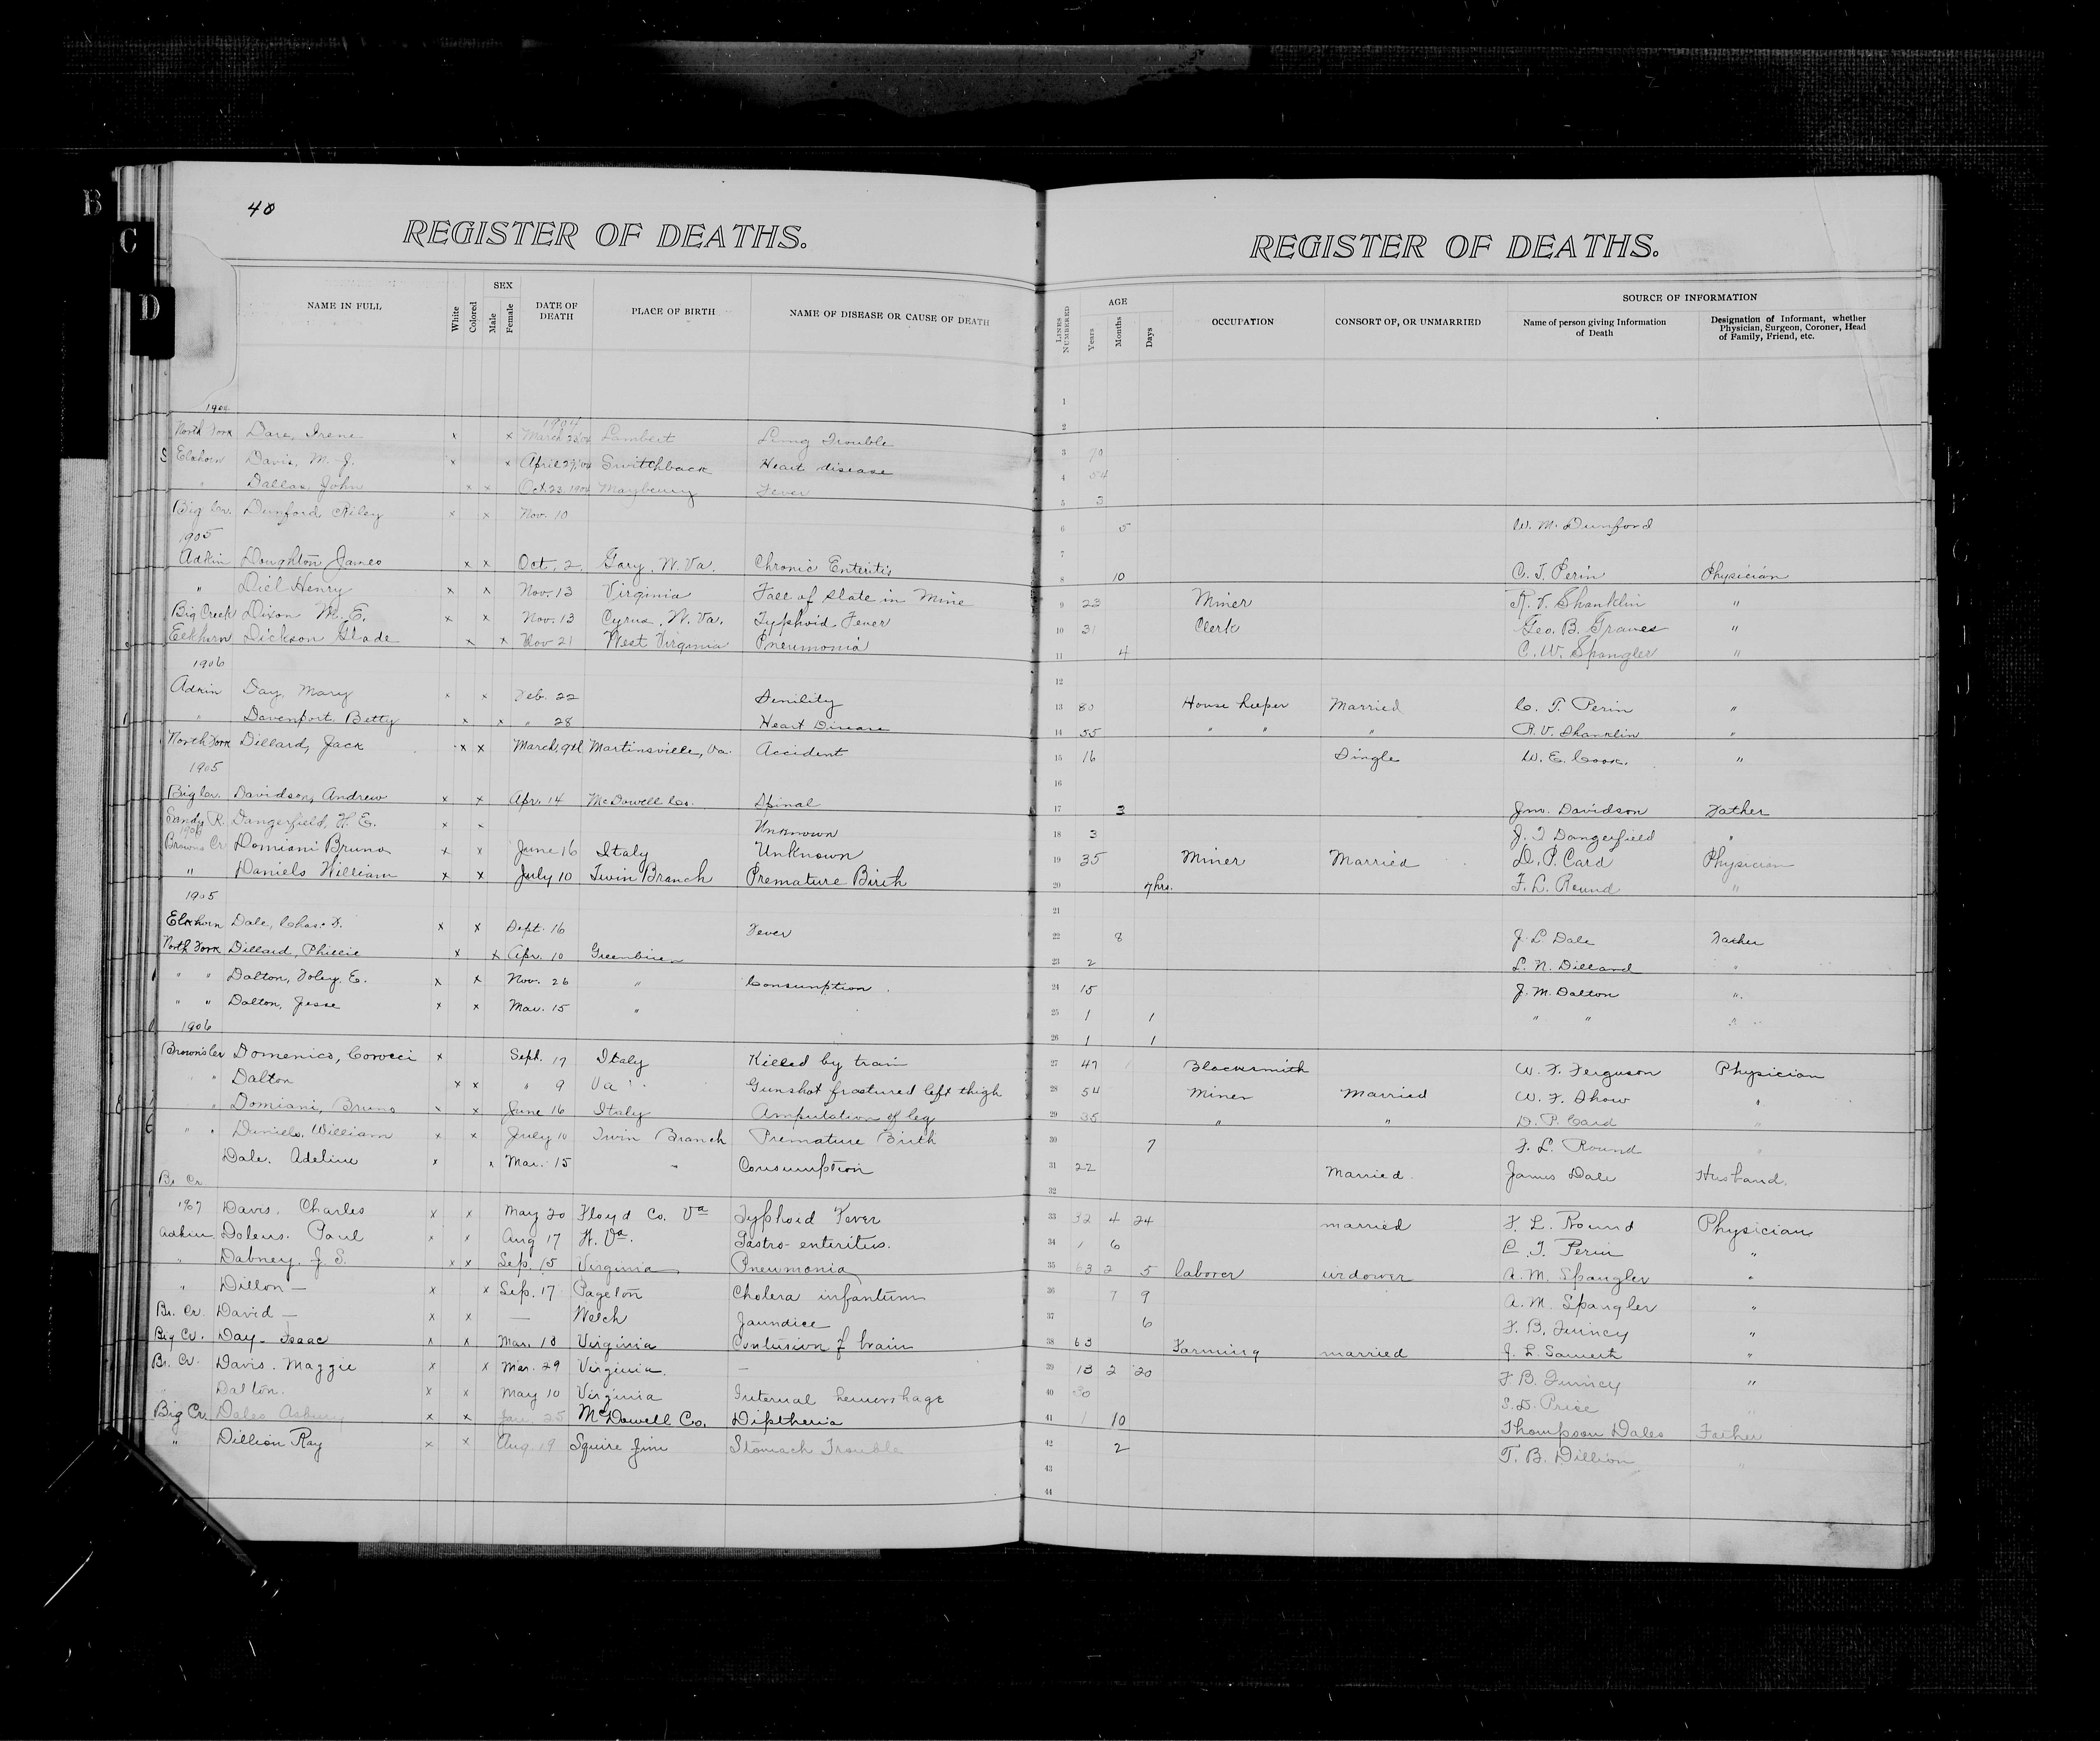 B
C
D
40
REGISTER OF DEATHS.
REGISTER OF DEATHS.
NAME IN FULL White Colored SEX Male Female DATE OF DEATH PLACE OF BIRTH NAME OF DISEASE OR CAUSE OF DEATH
LINES NUMBERED AGE Years Months Days OCCUPATION CONSORT OF, OR UNMARRIED SOURCE OF INFORMATION Name of person giving Information of Death Designation of Informant, whether Physician, Surgeon, Coroner, Head of Family, Friend, etc.
1
1904 1904 2
North Fork Dare, Irene x x March 23 '04 Lambert Lung Trouble 3 70
Elkhorn Davis, M. J. x x April 27 '04 Switchback Heart disease 4 54
" Dallas, John x x Oct. 23, 1904 Mayberry Fever 5 3
Big Cr. Dunford, Riley x x Nov. 10 6 5 W. M. Dunford
1905 7
Adkin Doughton James x x Oct. 2 Gary, W. Va. Chronic Enteritis 8 10 C. T. Perin Physician
" Diel Henry x x Nov. 13 Virginia Fall of slate in Mine 9 23 Miner R. V. Shanklin "
Big Creek Dixon M. E. x x Nov. 13 Cyrus, W. Va. Typhoid Fever 10 31 Clerk Geo. B. Graves "
Elkhorn Dickson Glade x x Nov 21 West Virginia Pneumonia 11 4 C. W. Spangler "
1906 12
Adkin Day, Mary x x Feb. 22 Senility 13 80 House keeper Married C. T. Perin "
" Davenport, Betty x x " 28 Heart Disease 14 55 " " " R. V. Shanklin "
North Fork Dillard, Jack x x March, 9th Martinsville, Va. Accident 15 16 Single W. E. Cook. "
1905 16
Big Cr. Davidson, Andrew x x Apr. 14 McDowell Co. Spinal 17 3 Jno. Davidson Father
Sandy R. Dangerfield, H. E. x x Unknown 18 3 J. T. Dangerfield "
1906
Browns Cr Domiani Bruno x x June 16 Italy Unknown 19 35 Miner Married D. P. Card Physician
" Daniels William x x July 10 Twin Branch Premature Birth 20 7 hrs. F. L. Round "
1905 21
Elkhorn Dale, Chas. F. x x Sept. 16 Fever 22 8 J. L. Dale Father
North Fork Dillard, Phillie x x Apr. 10 Greenbrier 23 2 L. N. Dillard "
" " Dalton, Foley E. x x Nov. 26 " Consumption 24 15 J. M. Dalton "
" " Dalton, Jesse x x Mar. 15 " 25 1 1 " "
1906 26 1 1
Brown's Cr Domenico, Corocci x Sept. 17 Italy Killed by train 27 47 Blacksmith W. F. Ferguson Physician
" Dalton x x " 9 Va Gunshot fractured left thigh 28 54 Miner Married W. F. Show "
" Domiani, Bruno x x June 16 Italy Amputation of leg 29 35 " " D. P. Card "
" " Daniels, William x x July 10 Twin Branch Premature Birth 30 7 F. L. Round "
Dale, Adeline x x Mar. 15 " Consumption 31 22 Married James Dale Husband
Br Cr 32
1907 Davis, Charles x x May 20 Floyd Co. Va Typhoid Fever 33 32 4 24 married F. L. Round Physician
Adkin Paul x x Aug 17 W. Va. Gastro-enteritus. 34 1 6 C. T. Perin "
" Dabney. J S. x x Sep. 15 Virginia Pneumonia 35 63 2 5 laborer widower A. M. Spangler "
" Dillon — x x Sep. 17 Pageton Cholera infantum 36 7 9 A. M. Spangler "
Br. Cr. David — x x — Welch Jaundice 37 6 F. B. Quincy "
Big Cr. Day - Isaac x x Mar. 18 Virginia Contusion of brain 38 63 Farming married J. L. "
Br. Cr. Davis. Maggie x x Mar. 29 Virginia. — 39 13 2 20 F. B. Quincy "
Dalton. x x May 10 Virginia Internal hemorrhage 40 30 S. D. Price
Big Cr. Dales Asbury x x Jan. 25 McDowell Co. Diptheria 41 1 10 Thompson Dales Father
" Dillion Ray x x Aug. 19 Squire Jim Stomach Trouble 42 2 T. B. Dillion "
43
44